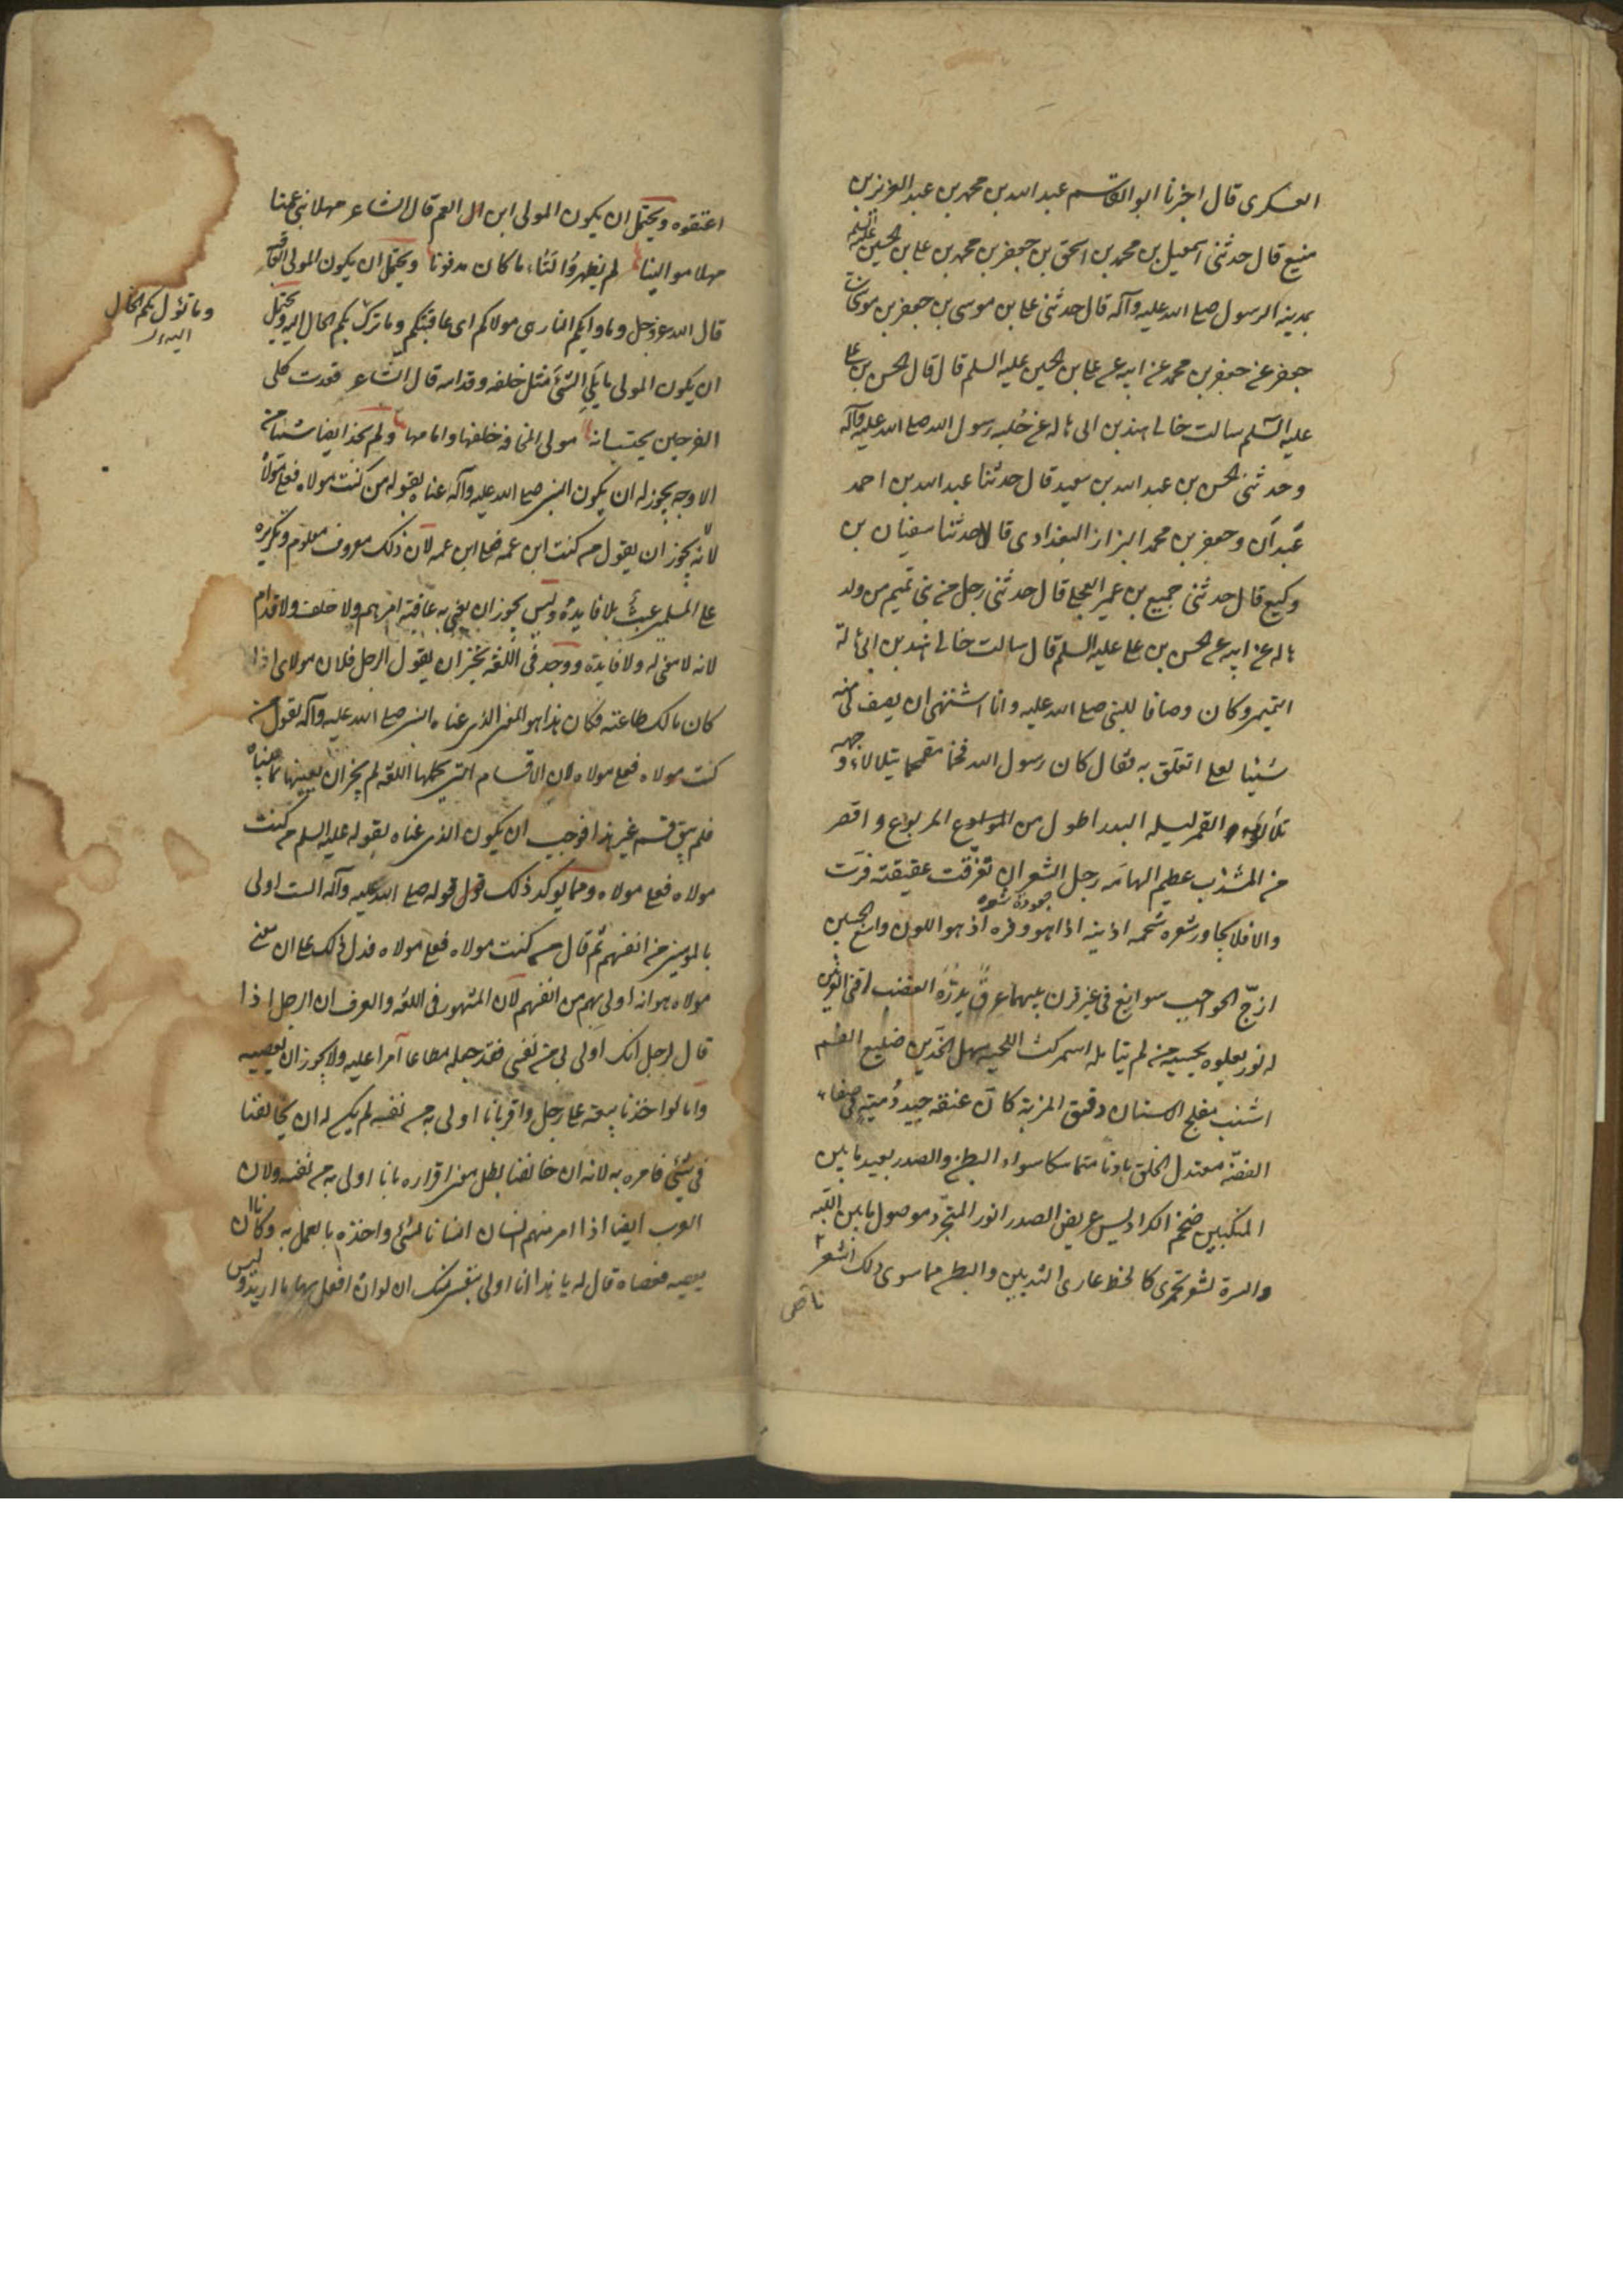 العسكرى قال اخبرنا ابو القاسم عبد الله بن محمد بن عبد العزيز بن
منيع قال حدثنى اسمعيل بن محمد بن اسحق بن جعفر بن محمد بن على بن الحسين عليهم السلم
بمدينه الرسول صلى الله عليه وآله قال حدثنى على بن موسى بن جعفر بن
جعفر عن جعفر بن محمد عن ابيه عن على بن الحسين عليه السلم قال قال الحسن بن على
عليه السّلم سالت خالى هند بن ابى هاله عن حُليه رسول الله صلى الله عليه وآله
وحدثنى الحسن بن عبد الله بن سعيد قال حدثنا عبد الله بن احمد
عَبدان وجعفر بن محمد البزاز البغدادى قالا حدثنا سفيان بن
وكيع قال حدثنى جميع بن عمير العجلى قال حدثنى رجل من بنى تميم من ولد
هاله عن ابيه عن الحسن بن على عليه السلم قال سالت خالى هند بن ابى هالة
التميمى وكان وصافا للنبى صلى الله عليه وانا اشتهى ان يصف لى منه
شيئا لعلى اتعلق به فقال كان رسول الله فخما مفخما يتلالاء وجهه
تلألؤ القمر ليله البدر اطول من المربوع واقصر
من المشذب عظيم الهامه رجل الشعر ان تفرقت عقيقته فرقت
والا فلا يجاوز شعره شحمه اذنيه اذا هو وفره ازهر اللون واسع الجبين
ازجّ الحواجب سوابغ فى غير قرن بينهما عرقٌ يدرّه الغضب اقنى العرنين
له نور يعلوه يحسبه من لم يتامله اشم كث اللحيه سهل الخدّين ضليع الفم
اشنب مفلج الاسنان دقيق المسربة كانّ عنقه جيد دُميَةٍ فى صفاء
الفضّة معتدل الخلق بادنا متماسكا سواء البطن والصدر بعيد ما بين
المنكبين ضخم الكراديس عريض الصدر انور المتجرّد موصول ما بين اللبّه
والسرة بشعر يجرى كالخط عارى الثديين والبطن مما سوى ذلك اشعر
اعتقوه ويحتمل ان يكون المولى ابن العم قال الشاعر مهلا بنى عمنا
مهلا موالينا لم تظهرُوا لنَا ما كان مدفونا ويحتمل ان يكون المولى العاقبه
قال الله عز وجل وماويكم النار هى مولاكم اى عاقبتكم وما ترك بكم الحال اليه ويحتمل
وما تؤل بكم الحال
اليه
ان يكون المولى ما يلى الشئ مثل خلفه وقدامه قال الشّاعر فغدت كلى
الفرجين يحتسب انه مولى المخافه خلفها وامامها ولم نجد ايضا شيئا من
الاوجه يجوز له ان يكون النبى صلى الله عليه وآله عناه بقوله من كنت مولاه فعلى مولاه
لانّه يجوز ان يقول من كنت ابن عمه فعلى ابن عمه لان ذلك معروف معلوم وتكريره
على المسلمين عبثٌ بلا فايدة وليس يجوز ان يعنى به عاقبة امرهم ولا خلف ولا قدام
لانه لا معنى له ولا فايدة ووجد فى اللغه نجيز ان يقول الرجل فلان مولاى اذا
كان مالك طاعته فكان هذا هو المعنى الذى عناه النبى صلى الله عليه وآله بقوله من
كنت مولاه فعلى مولاه لان الاقسام التى يحتملها اللغه لم يجز ان يعنيها بما عناه
فلم يبق قسم غير هذا فوجب ان يكون الذى عناه بقوله عليه السلم من كنت
مولاه فعلى مولاه ومما يوكد ذلك قوله صلى الله عليه وآله الست اولى
بالمومنين من انفسهم ثم قال من كنت مولاه فعلى مولاه فدل ذلك على ان معنى
مولاه هو انه اولى بهم من انفسهم لان المشهور فى اللغه والعرف ان الرجل اذا
قال لرجل انك اولى بى من نفسى فقد جعله مطاعا آمرا عليه ولا يجوز ان يعصيه
وانا لو اخذنا بيعه على رجل واقر بانا اولى به من نفسه لم يكن له ان يخالفنا
فى شئ نامره به لانه ان خالفنا بطل معنى اقراره بانا اولى به من نفسه ولان
العرب ايضا اذا امر منهم انسان انسانا بشئ واخذه بالعمل به وكان
يعصيه فعصاه قال له يا هذا انا اولى بنفسى منك ان لى ان افعل بها ما اريد وليس